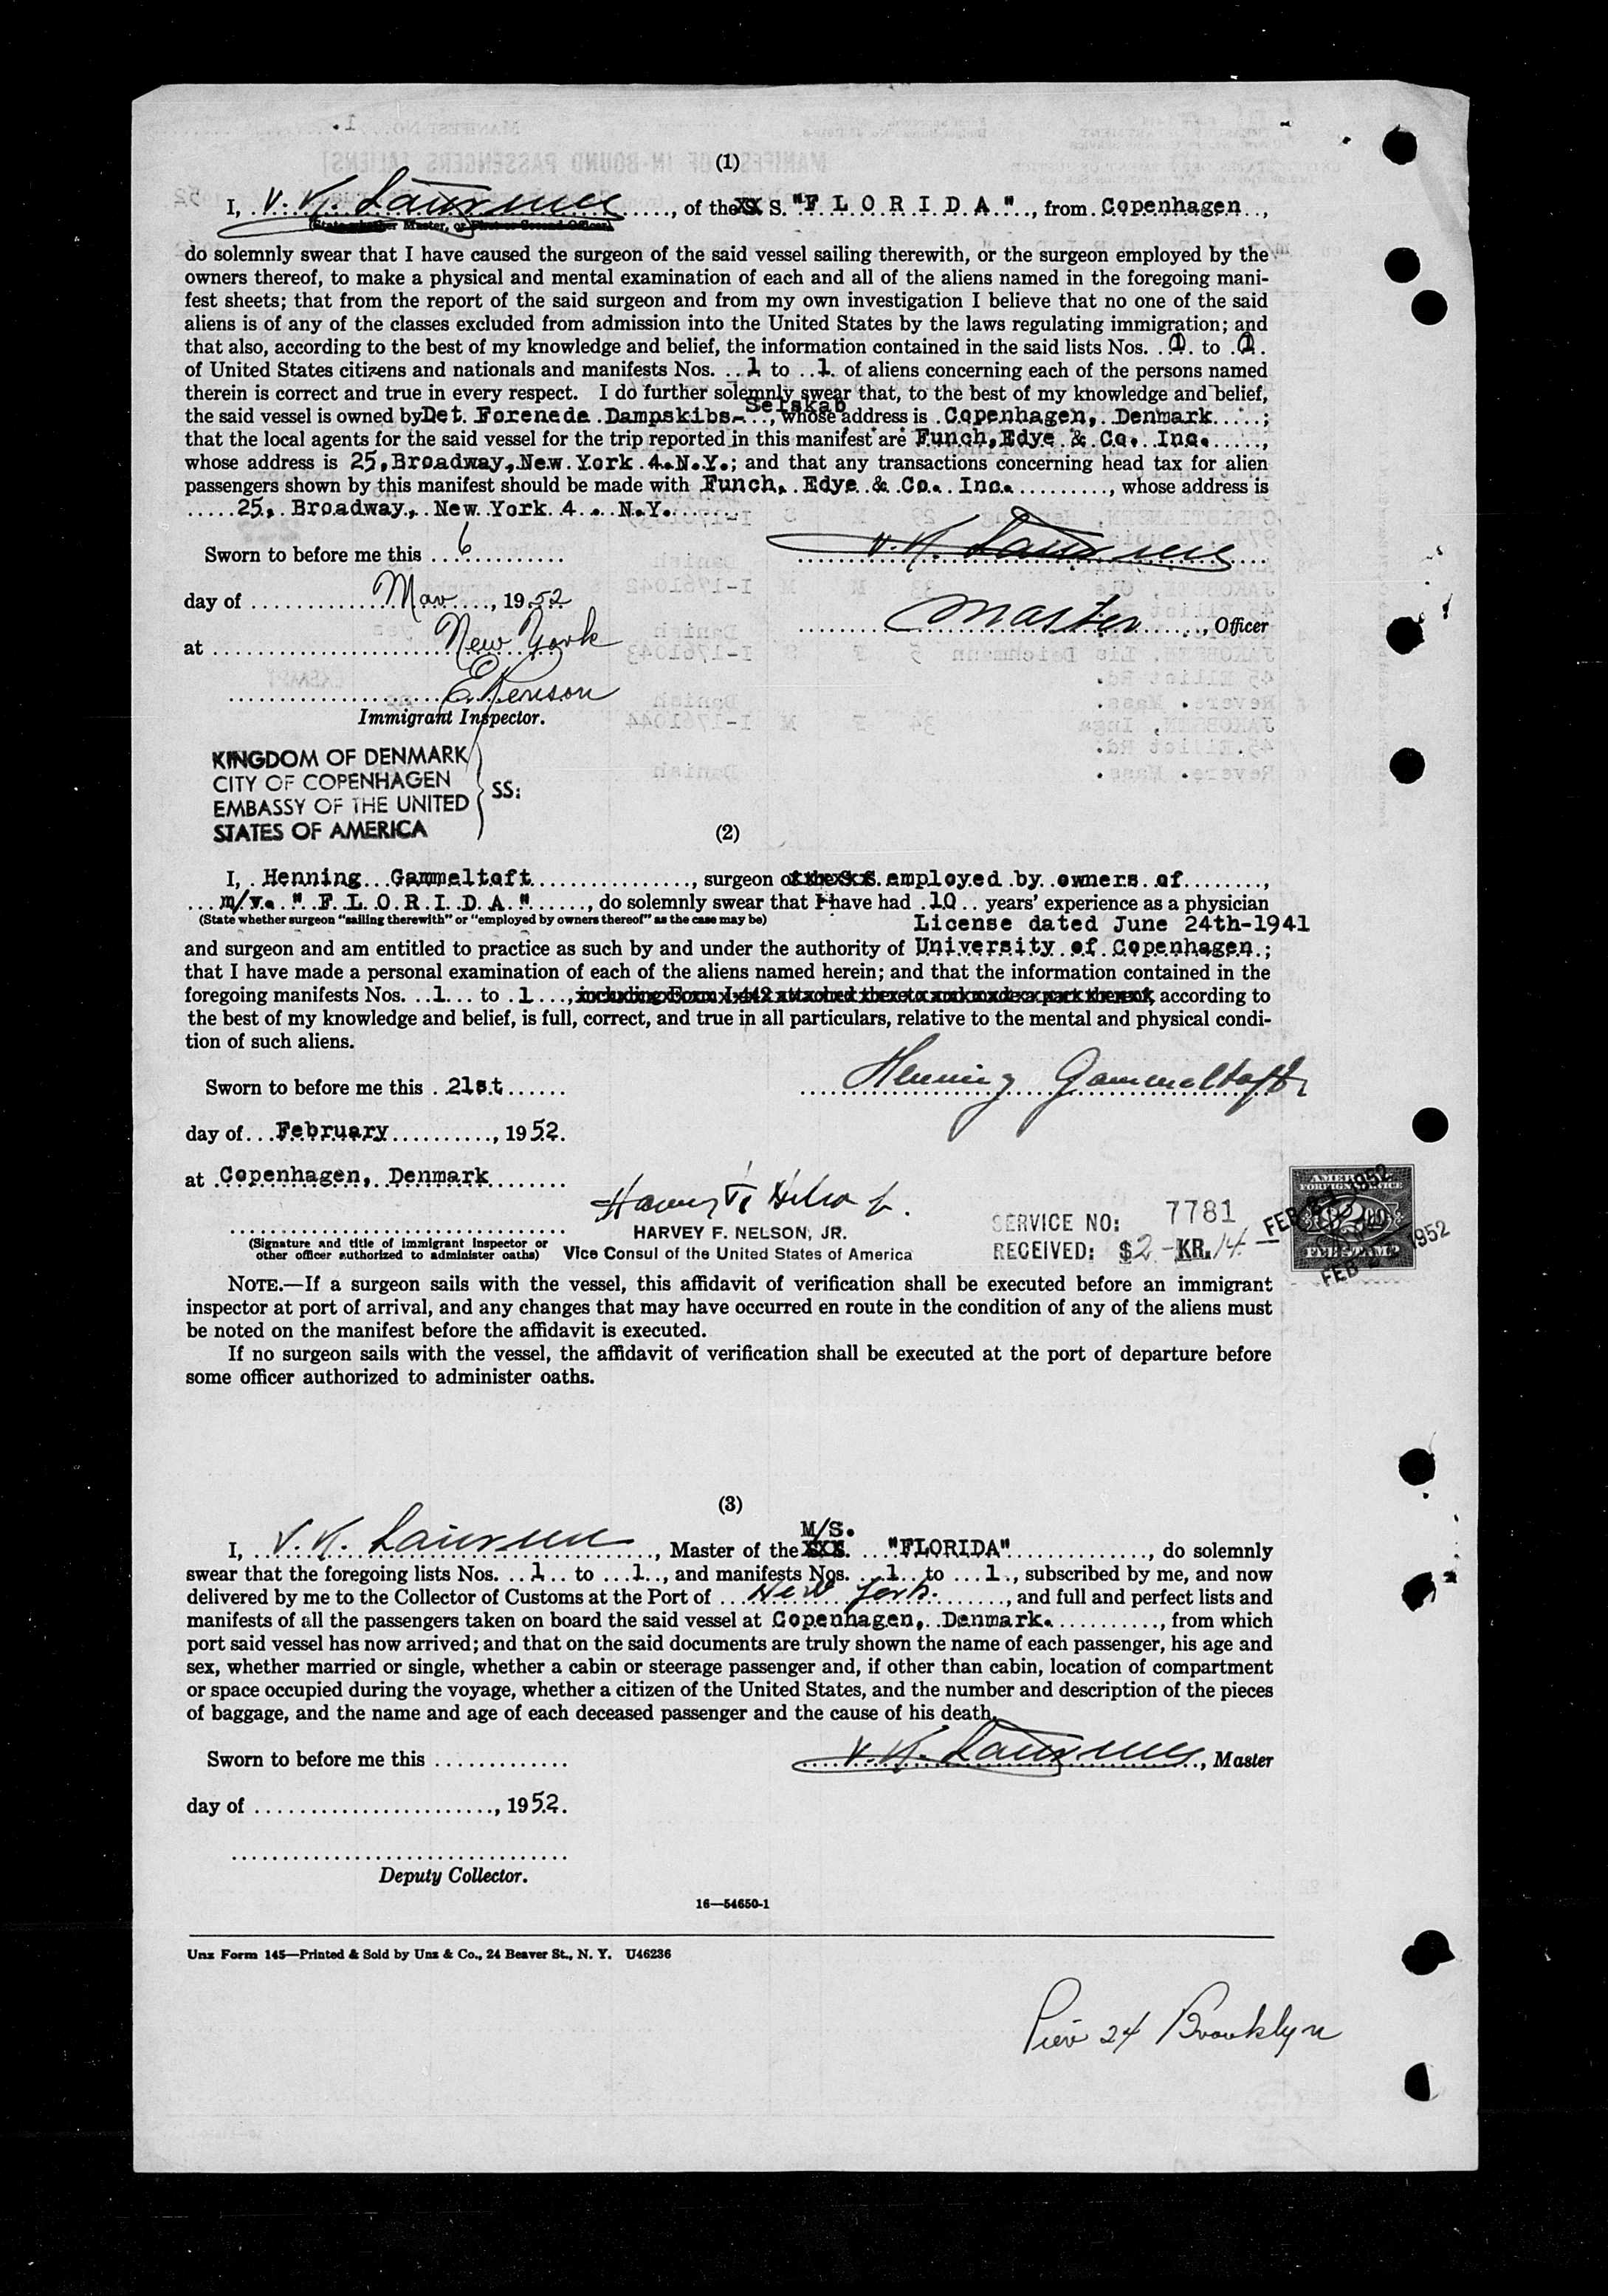 (1)
I, V. K. Laursen, of the XX S. "F L O R I D A", from Copenhagen,
(State whether Master, or First or Second Officer)
do solemnly swear that I have caused the surgeon of the said vessel sailing therewith, or the surgeon employed by the
owners thereof, to make a physical and mental examination of each and all of the aliens named in the foregoing mani-
fest sheets; that from the report of the said surgeon and from my own investigation I believe that no one of the said
aliens is of any of the classes excluded from admission into the United States by the laws regulating immigration; and
that also, according to the best of my knowledge and belief, the information contained in the said lists Nos. 1 to 1.
of United States citizens and nationals and manifests Nos. 1 to 1. of aliens concerning each of the persons named
therein is correct and true in every respect. I do further solemnly swear that, to the best of my knowledge and belief,
the said vessel is owned by Det. Forenede Dampskibs-Selskab, whose address is Copenhagen, Denmark;
that the local agents for the said vessel for the trip reported in this manifest are Funch, Edye & Co. Inc.,
whose address is 25, Broadway, New York 4. N.Y.; and that any transactions concerning head tax for alien
passengers shown by this manifest should be made with Funch, Edye & Co. Inc., whose address is
25, Broadway, New York 4. N.Y.
Sworn to before me this 6 V. K. Laursen
day of Mar, 1952
Master, Officer
at New York
Immigrant Inspector.
KINGDOM OF DENMARK
CITY OF COPENHAGEN
EMBASSY OF THE UNITED
STATES OF AMERICA
SS:
(2)
I, Henning Gammeltoft, surgeon of the S.S. employed by owners of,
m/v. "F L O R I D A", do solemnly swear that I have had 10 years' experience as a physician
(State whether surgeon "sailing therewith" or "employed by owners thereof" as the case may be)
License dated June 24th-1941
and surgeon and am entitled to practice as such by and under the authority of University of Copenhagen;
that I have made a personal examination of each of the aliens named herein; and that the information contained in the
foregoing manifests Nos. 1 to 1, including Form I-442 attached thereto and made a part thereof, according to
the best of my knowledge and belief, is full, correct, and true in all particulars, relative to the mental and physical condi-
tion of such aliens.
Sworn to before me this 21st Henning Gammeltoft
day of February, 1952.
at Copenhagen, Denmark
HARVEY F. NELSON, JR.
Vice Consul of the United States of America
(Signature and title of immigrant inspector or
other officer authorized to administer oaths)
SERVICE NO: 7781
RECEIVED: $2- KR. 14-
FEB 21 1952
NOTE.—If a surgeon sails with the vessel, this affidavit of verification shall be executed before an immigrant
inspector at port of arrival, and any changes that may have occurred en route in the condition of any of the aliens must
be noted on the manifest before the affidavit is executed.
If no surgeon sails with the vessel, the affidavit of verification shall be executed at the port of departure before
some officer authorized to administer oaths.
(3)
M/S.
I, V. K. Laursen, Master of the XXS. "FLORIDA", do solemnly
swear that the foregoing lists Nos. 1 to 1, and manifests Nos. 1 to 1, subscribed by me, and now
delivered by me to the Collector of Customs at the Port of New York, and full and perfect lists and
manifests of all the passengers taken on board the said vessel at Copenhagen, Denmark., from which
port said vessel has now arrived; and that on the said documents are truly shown the name of each passenger, his age and
sex, whether married or single, whether a cabin or steerage passenger and, if other than cabin, location of compartment
or space occupied during the voyage, whether a citizen of the United States, and the number and description of the pieces
of baggage, and the name and age of each deceased passenger and the cause of his death.
Sworn to before me this V. K. Laursen, Master
day of , 1952.
Deputy Collector.
16—54650-1
Unz Form 145—Printed & Sold by Unz & Co., 24 Beaver St., N. Y. U46236
Pier 24 Brooklyn